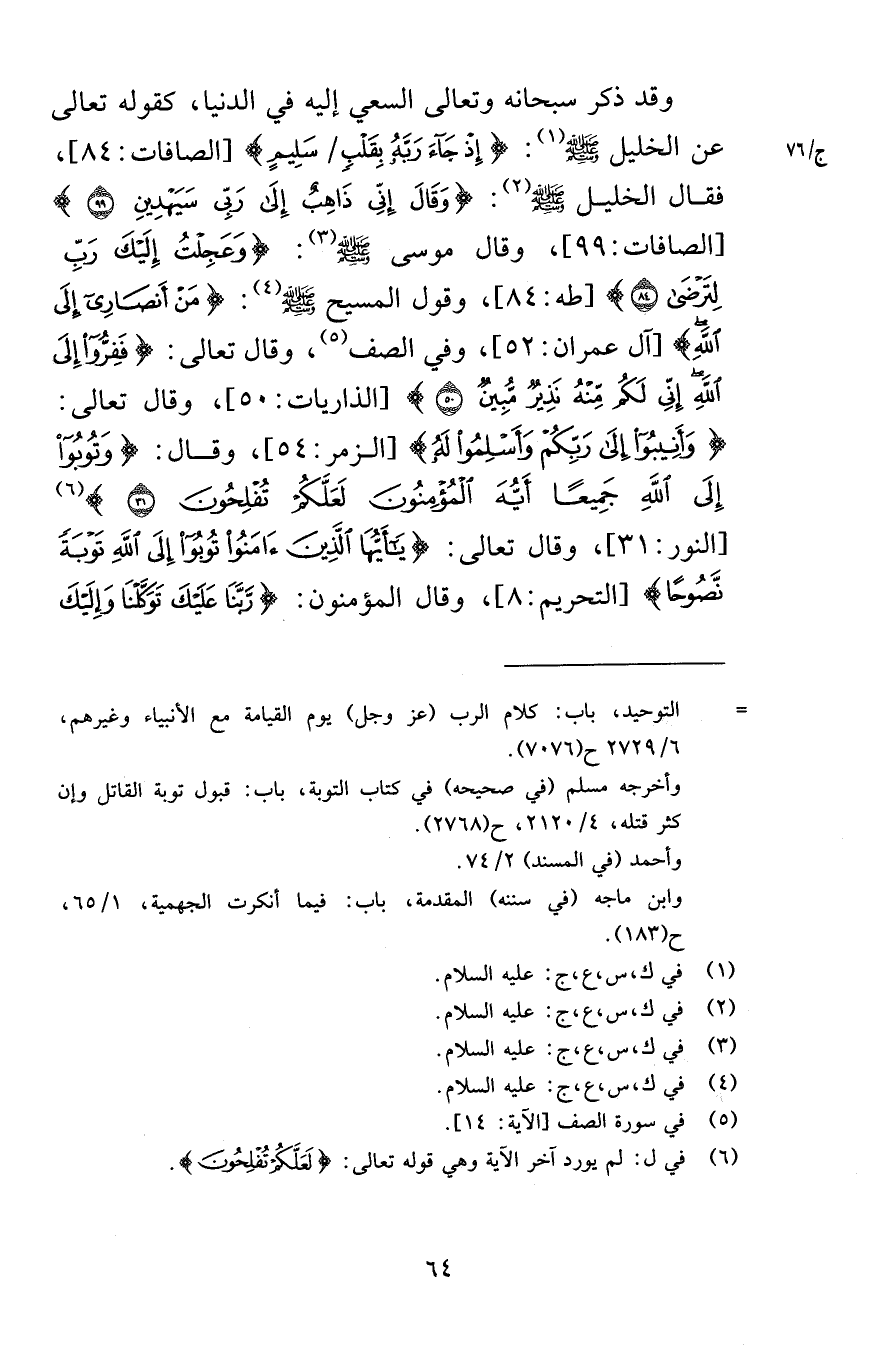 وقد ذكر سبحانه وتعالى السعي إليه في الدنيا، كقوله تعالى
ج/٧٦ عن الخليل ﷺ(١): ﴿إِذْ جَآءَ رَبَّهُۥ بِقَلْبٍ/ سَلِيمٍ﴾ [الصافات: ٨٤]،
فقال الخليل ﷺ(٢): ﴿وَقَالَ إِنِّى ذَاهِبٌ إِلَىٰ رَبِّى سَيَهْدِينِ ٩٩﴾
[الصافات: ٩٩]، وقال موسى ﷺ(٣): ﴿وَعَجِلْتُ إِلَيْكَ رَبِّ
لِتَرْضَىٰ ٨٤﴾ [طه: ٨٤]، وقول المسيح ﷺ(٤): ﴿مَنْ أَنصَارِىٓ إِلَى
ٱللَّهِۖ﴾ [آل عمران: ٥٢]، وفي الصف(٥)، وقال تعالى: ﴿فَفِرُّوٓا۟ إِلَى
ٱللَّهِۖ إِنِّى لَكُم مِّنْهُ نَذِيرٌ مُّبِينٌ ٥٠﴾ [الذاريات: ٥٠]، وقال تعالى:
﴿وَأَنِيبُوٓا۟ إِلَىٰ رَبِّكُمْ وَأَسْلِمُوا۟ لَهُۥ﴾ [الزمر: ٥٤]، وقال: ﴿وَتُوبُوٓا۟
إِلَى ٱللَّهِ جَمِيعًا أَيُّهَ ٱلْمُؤْمِنُونَ لَعَلَّكُمْ تُفْلِحُونَ ٣١﴾(٦)
[النور: ٣١]، وقال تعالى: ﴿يَـٰٓأَيُّهَا ٱلَّذِينَ ءَامَنُوا۟ تُوبُوٓا۟ إِلَى ٱللَّهِ تَوْبَةً
نَّصُوحًا﴾ [التحريم: ٨]، وقال المؤمنون: ﴿رَّبَّنَا عَلَيْكَ تَوَكَّلْنَا وَإِلَيْكَ
= التوحيد، باب: كلام الرب (عز وجل) يوم القيامة مع الأنبياء وغيرهم،
٦/ ٢٧٢٩ ح(٧٠٧٦).
وأخرجه مسلم (في صحيحه) في كتاب التوبة، باب: قبول توبة القاتل وإن
كثر قتله، ٤/ ٢١٢٠، ح(٢٧٦٨).
وأحمد (في المسند) ٢/ ٧٤.
وابن ماجه (في سننه) المقدمة، باب: فيما أنكرت الجهمية، ١/ ٦٥،
ح(١٨٣).
(١) في ك،س،ع،ج: عليه السلام.
(٢) في ك،س،ع،ج: عليه السلام.
(٣) في ك،س،ع،ج: عليه السلام.
(٤) في ك،س،ع،ج: عليه السلام.
(٥) في سورة الصف [الآية: ١٤].
(٦) في ل: لم يورد آخر الآية وهي قوله تعالى: ﴿لَعَلَّكُمْ تُفْلِحُونَ﴾.
٦٤